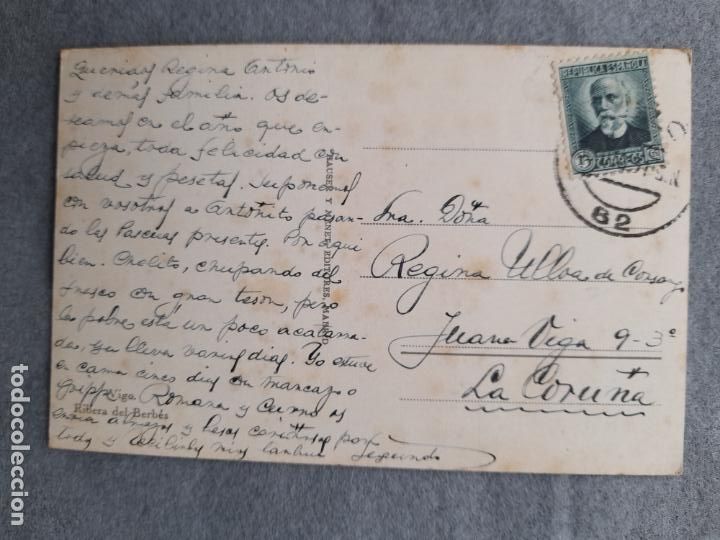 Queridos Regina Antonio
y demás familia. Os de-
seamos en el año que em-
pieza, toda felicidad con
salud y pesetas. Suponemos
con vosotros a Antoñito pasan-
do las Pascuas presentes. Por aqui
bien. Chelito, chupando del
fresco con gran teson, pero
la pobre está un poco acatarra-
da, ya lleva varios dias. Yo estuve
en cama cinco dias con
gripe. Romana y os
envia abrazos y besos para
todos y
Vigo.
Ribera del Berbés
HAUSER Y MENET, EDITORES, MADRID
REPUBLICA ESPAÑOLA
15 CORREOS CTS
82
Sra. Doña
Regina Ulloa de
Juana Vega 9-3º
La Coruña
todocoleccion